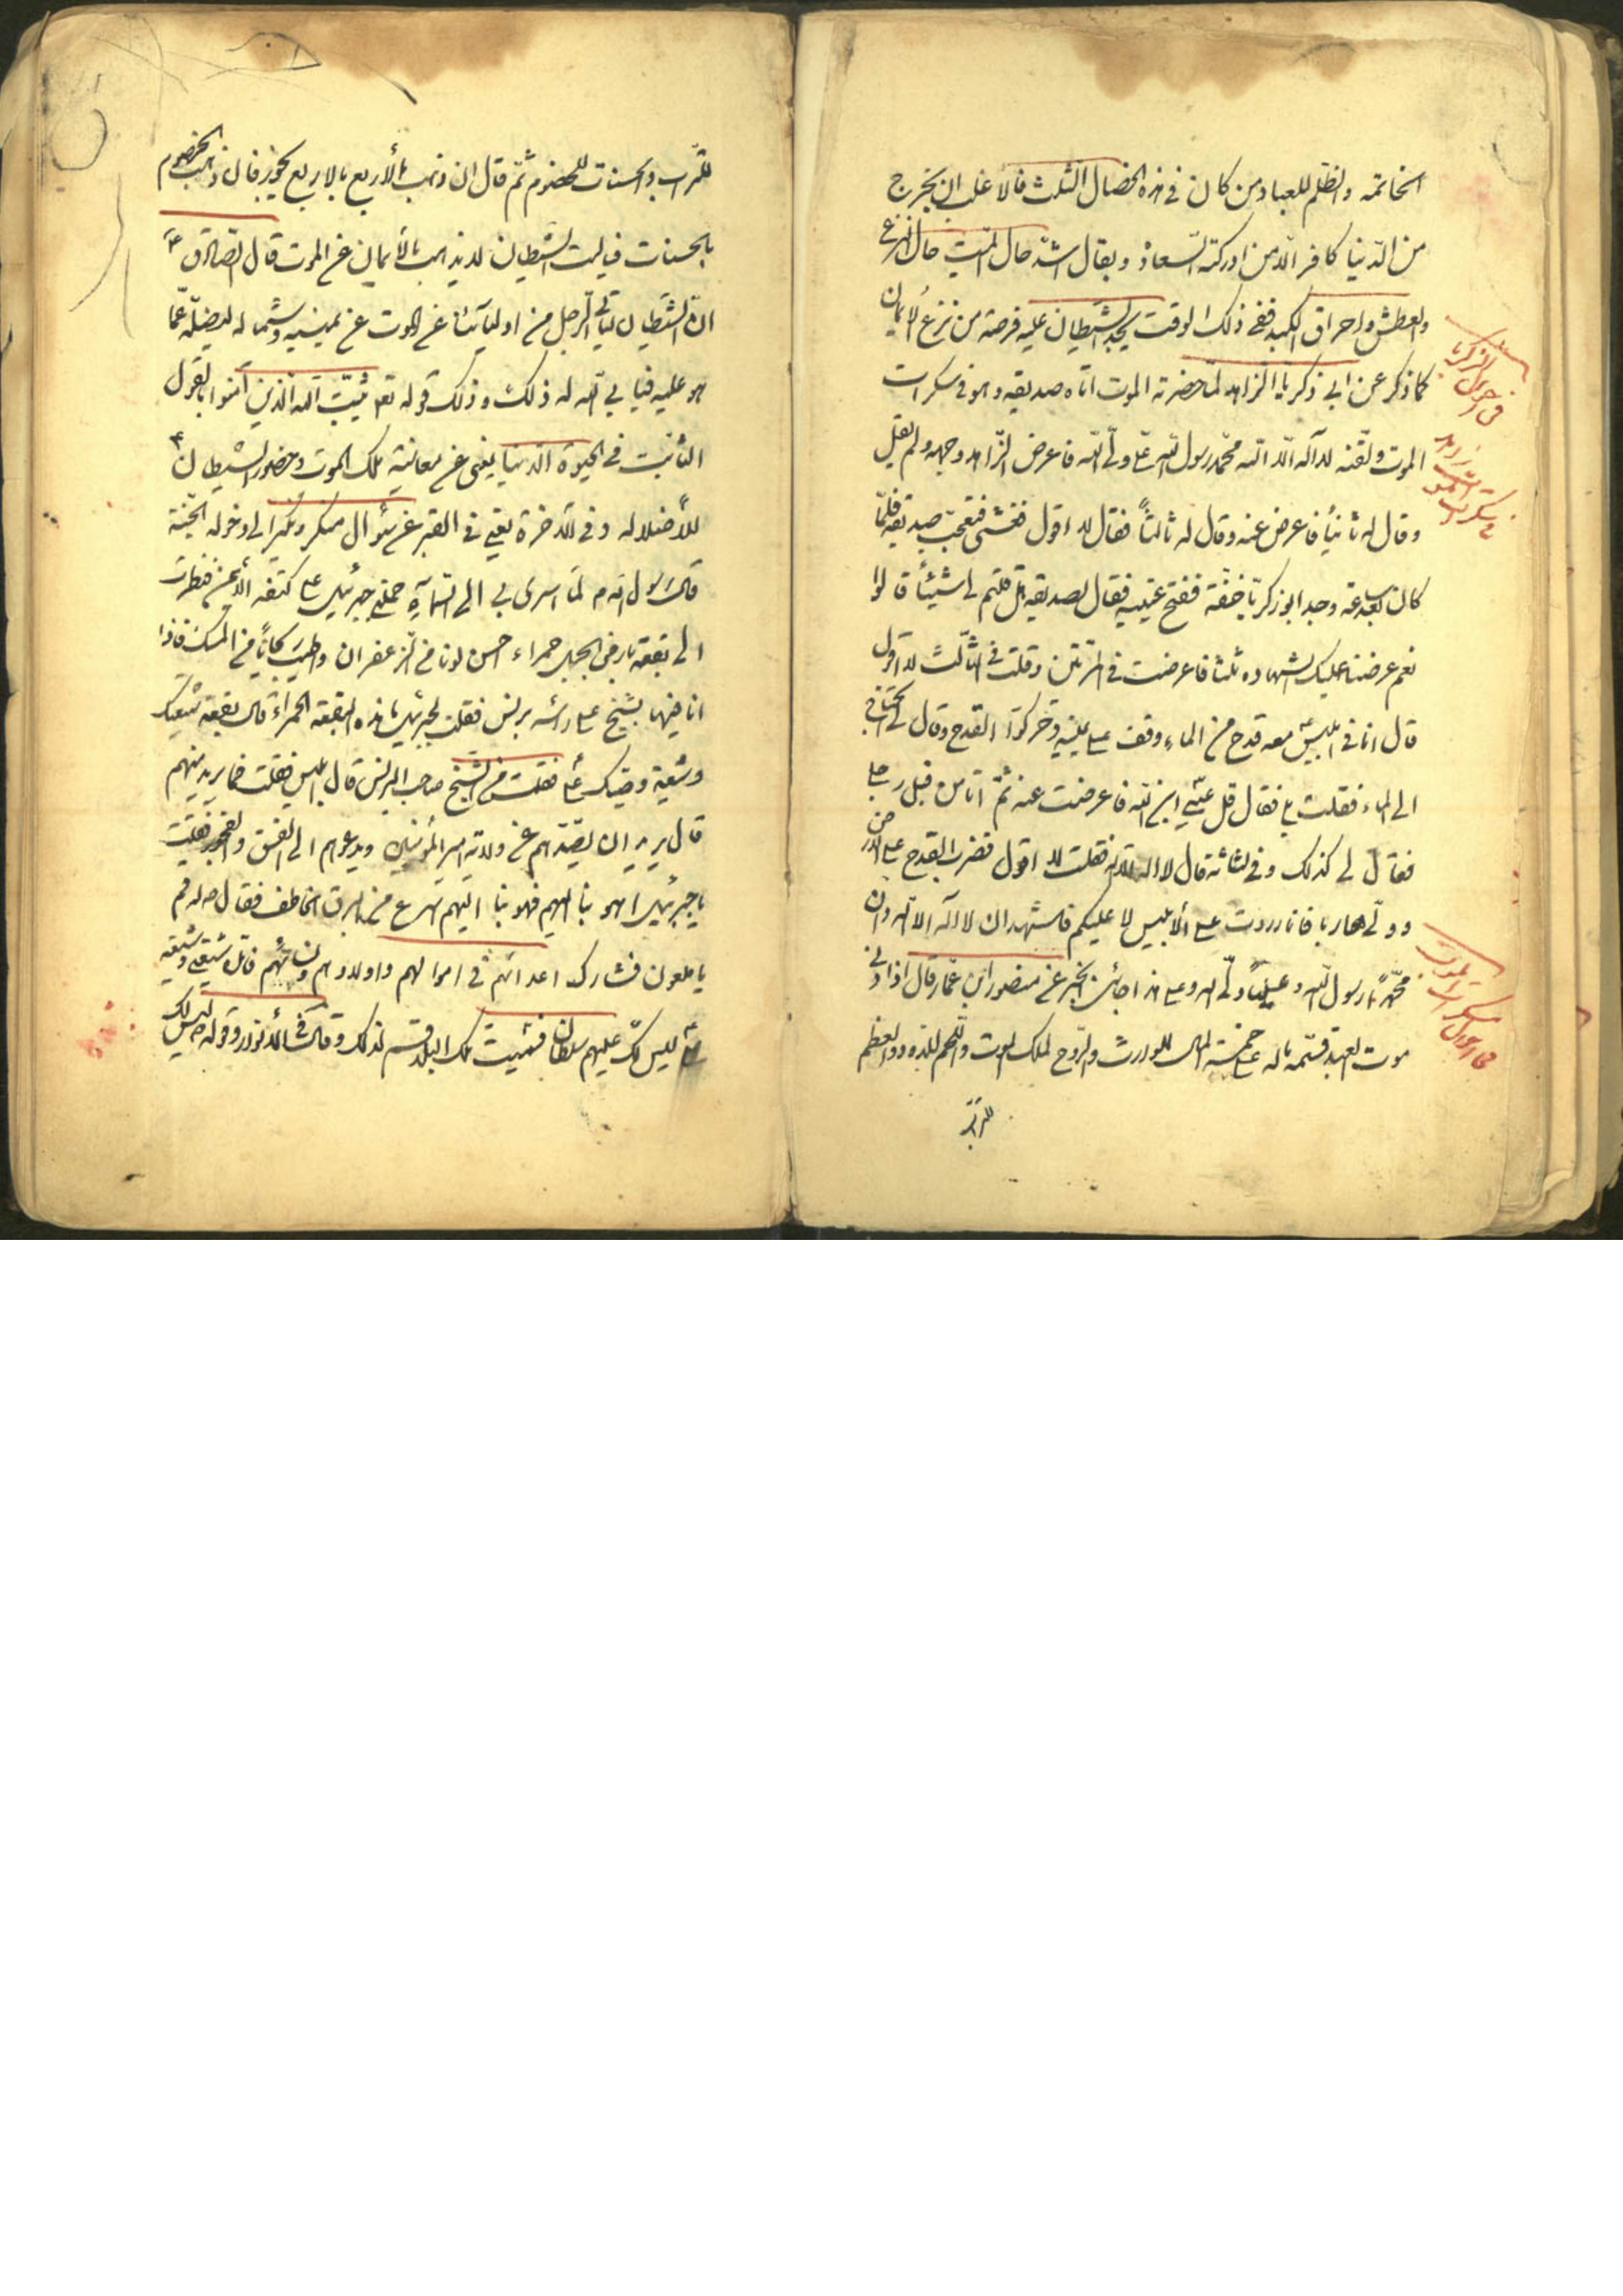 الخاتمه والظلم للعباد من كان فى هذه الخصال الثلث فالاغلب ان يخرج
من الدنيا كافر الا من ادركته السعادة ويقال اشد حال الميت حال النزع
والعطش واحراق الكبد ففى ذلك الوقت يجد الشيطان عليه فرصة من نزع الايمان
كما ذكر عن ابى ذكريا الزاهد لما حضرته الموت اتاه صديقه وهو فى سكرات
الموت ولقنه لا اله الا الله محمد رسول الله على ولى الله فاعرض الزاهد وجهه ولم يقل
وقال له ثانيا فاعرض عنه وقال له ثالثا فقال لا اقول فغشى فتعجب صديقه فلما
كان بعد ساعة وجد ابو زكريا خفة ففتح عينيه فقال لصديقه هل قلتم لى شيئا قالوا
نعم عرضنا عليك الشهاده ثلثا فاعرضت فى المرتين وقلت فى الثالث لا اقول
قال اتانى ابليس معه قدح من الماء وقف على يمينى وحرك القدح وقال لى تحتاج
الى الماء فقلت بلى فقال قل عيسى ابن الله فاعرضت عنه ثم اتا من قبل رجلى
فقال لى كذلك وفى الثالثة قال لا اله فقلت لا اقول فضرب القدح على الارض
وولى هاربا فانا رددت على الابليس لا عليكم فاشهد ان لا اله الا الله وان
محمدا رسول الله وعليا ولى الله وعلى هذا جائت الخبر عن منصور ابن عمار قال اذا دنى
موت العبد قسم ماله على خمسة المال للوارث والروح لملك الموت واللحم للدود والعظم
للتراب
فى احوال ابو زكريا
زاهد
فى سكرات الموت
فى احوال سكرات الموت
للتراب والحسنات للخصوم ثم قال ان ذهب الاربع بالاربع يجوز فان ذهب الخصوم
بالحسنات فياليت الشيطان لا يذهب بالايمان عن الموت قال الصادق ع
ان الشيطان لياتى الرجل من اوليائنا عن الموت عن يمينه وشماله ليضله عما
هو عليه فيابى الله له ذلك وذلك قوله تع يثبت الله الذين آمنوا بالقول
الثابت فى الحيوة الدنيا يعنى عن معاينة ملك الموت وحضور الشيطان
للأضلاله وفى الاخرة يعنى فى القبر عن سؤال منكر ونكير الى دخوله الجنة
قال رسول الله م لما اسرى بى الى السماء حملنى جبرئيل على كتفه الأيمن فنظرت
الى بقعة بارض الجبل حمراء احسن لونا من الزعفران واطيب من المسك فاذا
انا فيها بشيخ على راسه برنس فقلت لجبرئيل ما هذه البقعة الحمراء قال بقعة شيعتك
وشيعة وصيك على فقلت من الشيخ صاحب البرنس قال ابليس فقلت فما يريد منهم
قال يريد ان يصدهم عن ولاية امير المؤمنين ويدعوهم الى الفسق والفجور فقلت
يا جبرئيل اهو بنا اليهم فهو بنا اليهم اسرع من البرق الخاطف فقال له قم
يا ملعون فشارك اعدائهم فى اموالهم واولادهم ونسائهم فان شيعتى وشيعة
على ليس لك عليهم سلطان فسميت تلك البلد قم لذلك وقال فى الانوار وقوله ليس لك